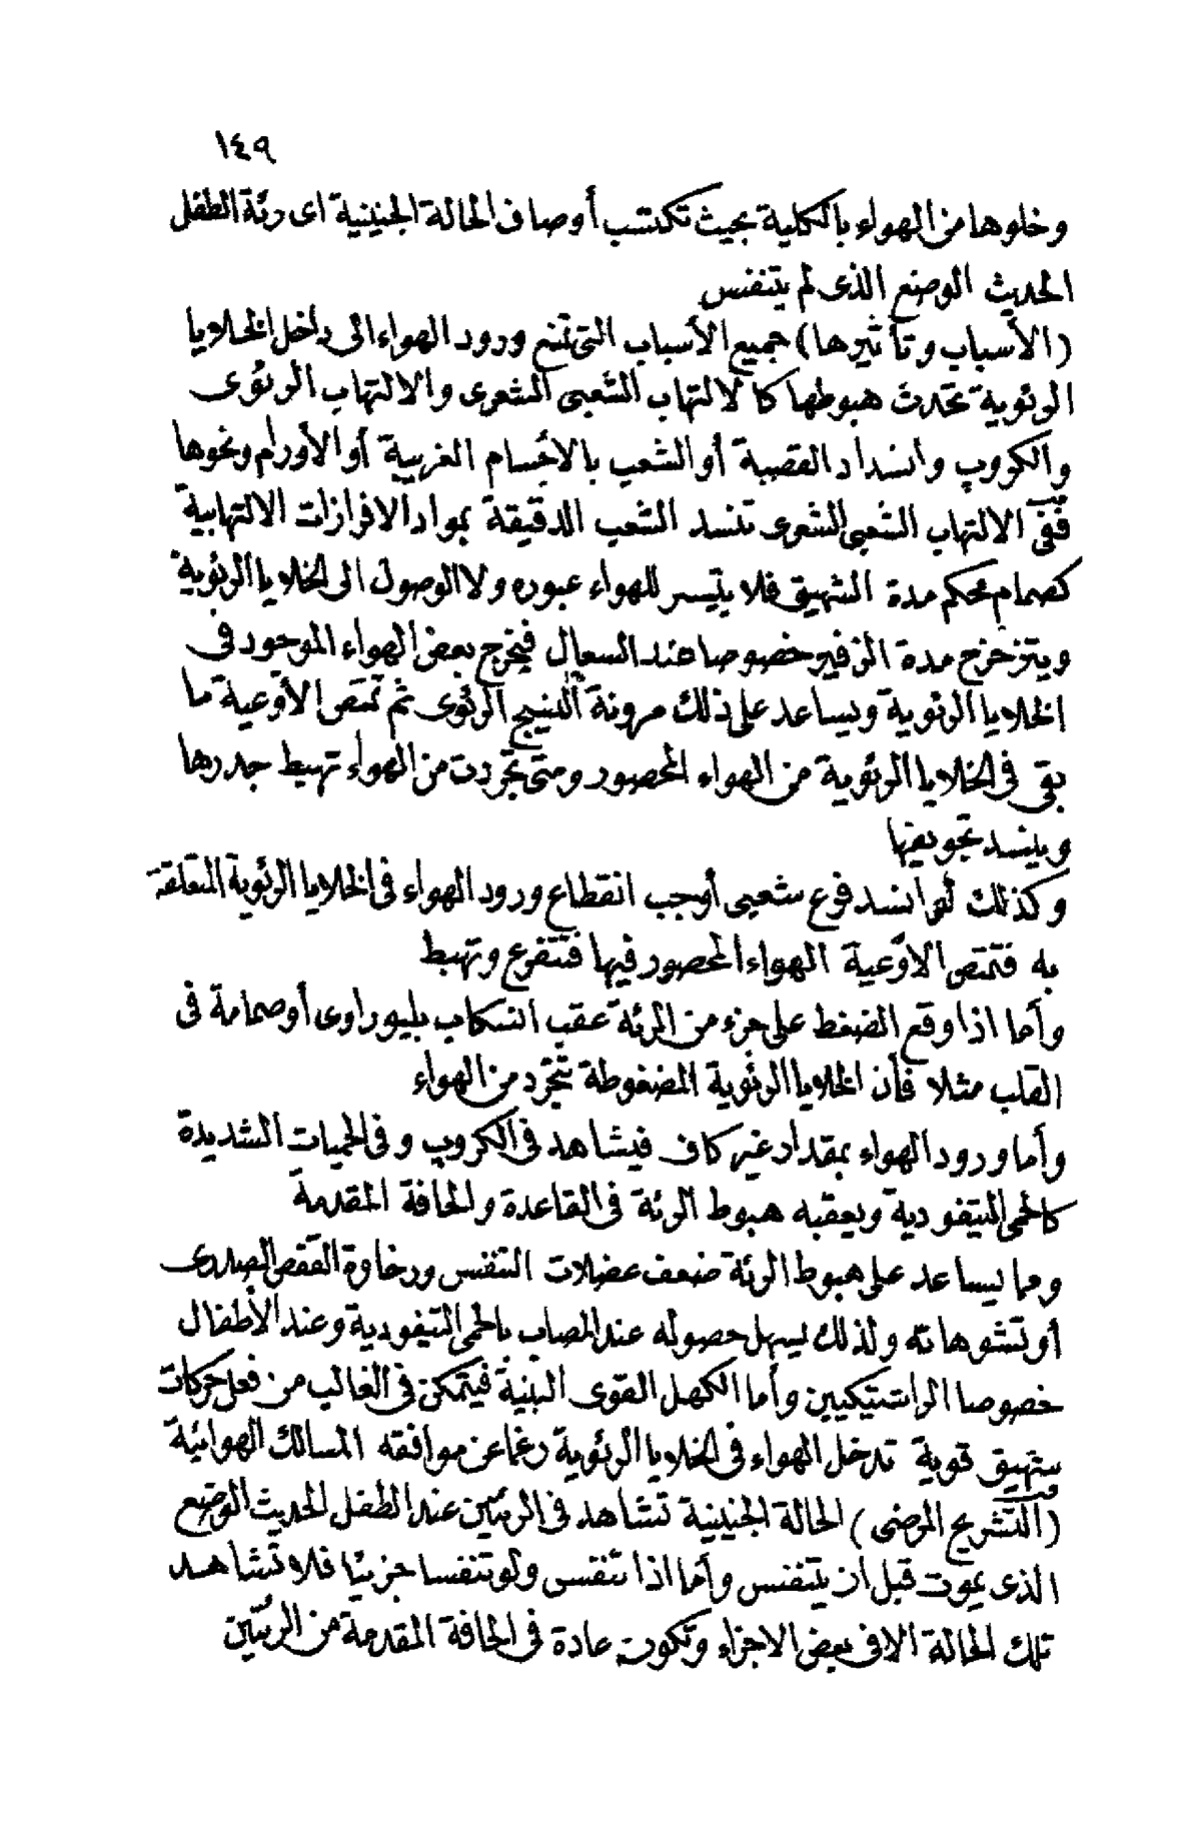 ١٤٩
وخلوها من الهواء بالكلية بحيث تكتسب أوصاف الحالة الجنينية اى رئة الطفل
الحديث الوضع الذى لم يتنفس
(الأسباب وتأثيرها) جميع الأسباب التى تمنع ورود الهواء الى داخل الخلايا
الرئوية تحدث هبوطها كالالتهاب الشعبى الشعرى والالتهاب الرئوى
والكروب وانسداد القصبة أو الشعب بالأجسام الغريبة أو الأورام ونحوها
ففى الالتهاب الشعبى الشعرى تنسد الشعب الدقيقة بمواد الافرازات الالتهابية
كصمام محكم مدة الشهيق فلا يتيسر للهواء عبوره ولا الوصول الى الخلايا الرئوية
ويتزحزح مدة الزفير خصوصا عند السعال فيخرج بعض الهواء الموجود فى
الخلايا الرئوية ويساعد على ذلك مرونة النسيج الرئوى ثم تمتص الأوعية ما
بقى فى الخلايا الرئوية من الهواء المحصور ومتى تجردت من الهواء تهبط جدرها
وينسد تجويفها
وكذلك لو انسد فرع شعبى أوجب انقطاع ورود الهواء فى الخلايا الرئوية المتعلقة
به فتمتص الاوعية الهواء المحصور فيها فتتفرغ وتهبط
وأما اذا وقع الضغط على جزء من الرئة عقب انسكاب بليوراوى أو ضخامة فى
القلب مثلا فأن الخلايا الرئوية المضغوطة تتجرد من الهواء
وأما ورود الهواء بمقدار غير كاف فيشاهد فى الكروب وفى الحميات الشديدة
كالحمى التيفودية ويعقبه هبوط الرئة فى القاعدة والحافة المقدمة
ومما يساعد على هبوط الرئة ضعف عضلات التنفس ورخاوة القفص الصدرى
أو تشوهاته ولذلك يسهل حصوله عند المصاب بالحمى التيفودية وعند الأطفال
خصوصا الراشتيكيين وأما الكهل القوى البنية فيتمكن فى الغالب من فعل حركات
شهيق قوية تدخل الهواء فى الخلايا الرئوية رغما عن موافقه المسالك الهوائية
(التشريح المرضى) الحالة الجنينية تشاهد فى الرئتين عند الطفل الحديث الوضع
الذى يموت قبل ان يتنفس وأما اذا تنفس ولو تنفسا جزئيا فلا تشاهد
تلك الحالة الا فى بعض الاجزاء وتكون عادة فى الحافة المقدمة من الرئتين